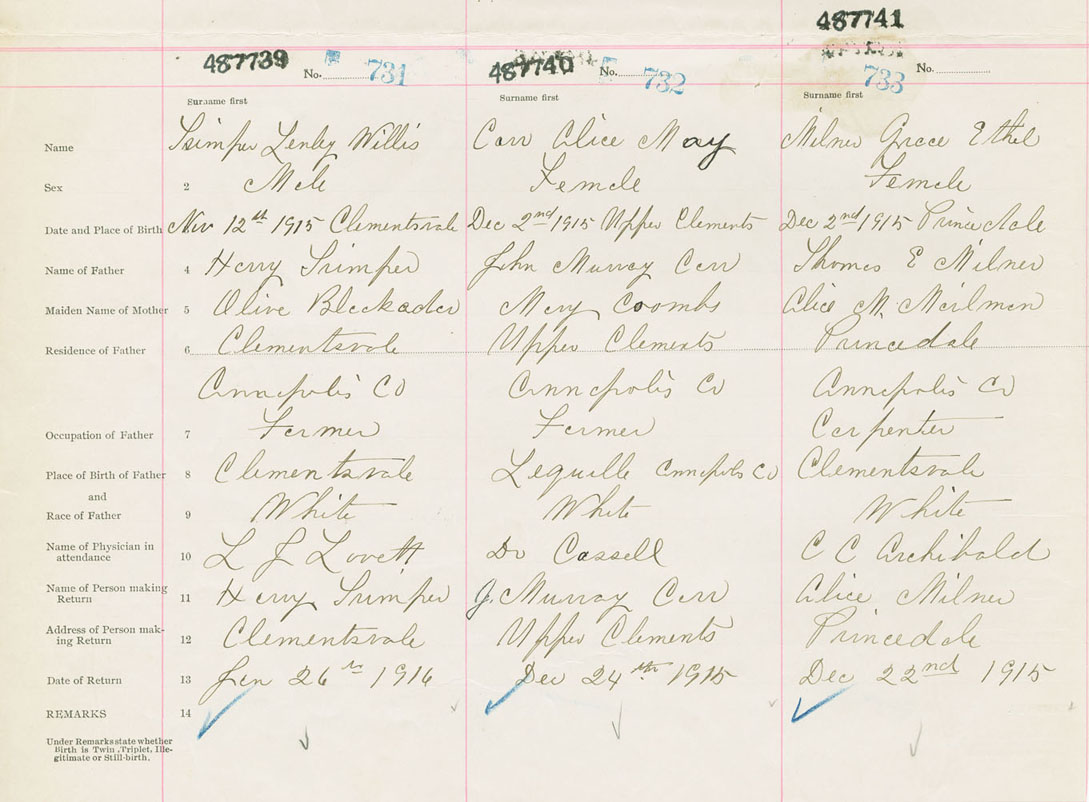 487741
487739 No. 731 487740 No. 732 733 No.
Surname first Surname first Surname first
Name Lenley Willis Carr Alice May Milner Grace Ethel
Sex 2 Male Female Female
Date and Place of Birth Nov 12th 1915 Clementsvale Dec 2nd 1915 Upper Clements Dec 2nd 1915 Princedale
Name of Father 4 Harry Trimper John Murray Carr Thomas E Milner
Maiden Name of Mother 5 Olive Blackadar Mary Coombs Alice M.
Residence of Father 6 Clementsvale Upper Clements Princedale
Annapolis Co Annapolis Co Annapolis Co
Occupation of Father 7 Farmer Farmer Carpenter
Place of Birth of Father 8 Clementsvale Lequille Annapolis Co Clementsvale
and
Race of Father 9 White White White
Name of Physician in
attendance 10 L J Lovett Dr Cassell C C Archibald
Name of Person making
Return 11 Harry Trimper J. Murray Carr Alice Milner
Address of Person mak-
ing Return 12 Clementsvale Upper Clements Princedale
Date of Return 13 Jan 26th 1916 Dec 24th 1915 Dec 22nd 1915
REMARKS 14
Under Remarks state whether
Birth is Twin, Triplet, Ille-
gitimate or Still-birth.